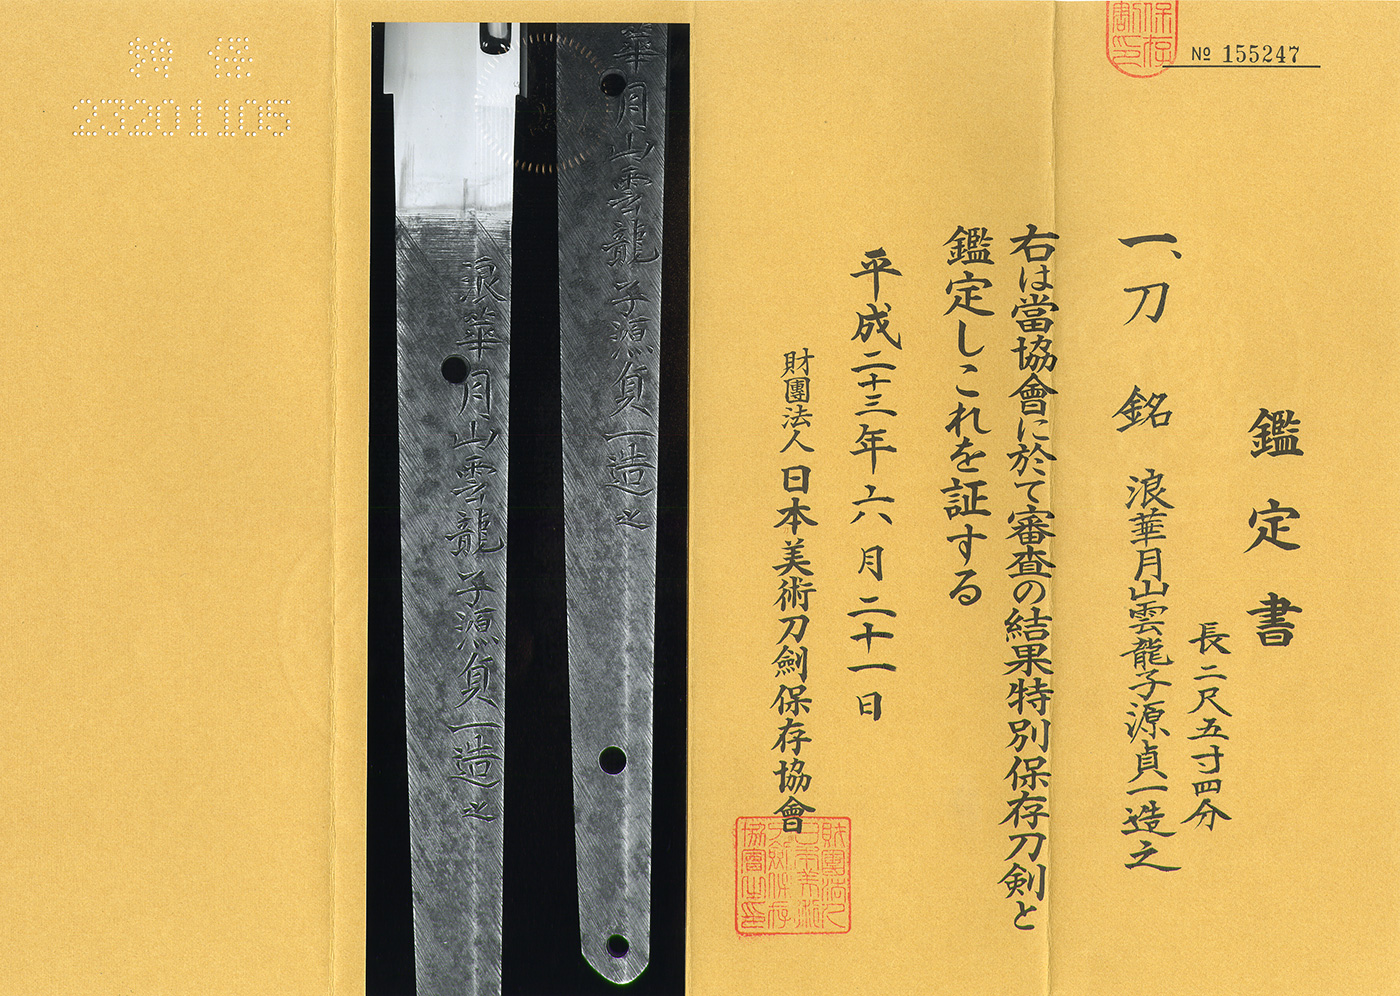 保存
割印
№ 155247
鑑定書
長二尺五寸四分
一、刀 銘 浪華月山雲龍子源貞一造之
右は當協會に於て審査の結果特別保存刀剣と
鑑定しこれを証する
平成二十三年六月二十一日
財團法人日本美術刀劍保存協會
財團法人
日本美術
刀劍保存
協會之印
華月山雲龍子源貞一造之
浪華月山雲龍子源貞一造之
特保
23201105